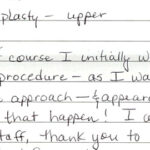 plasty - upper
course I initially w
procedure - as I wa
approach - & appear
that happen! I
taff, thank you to